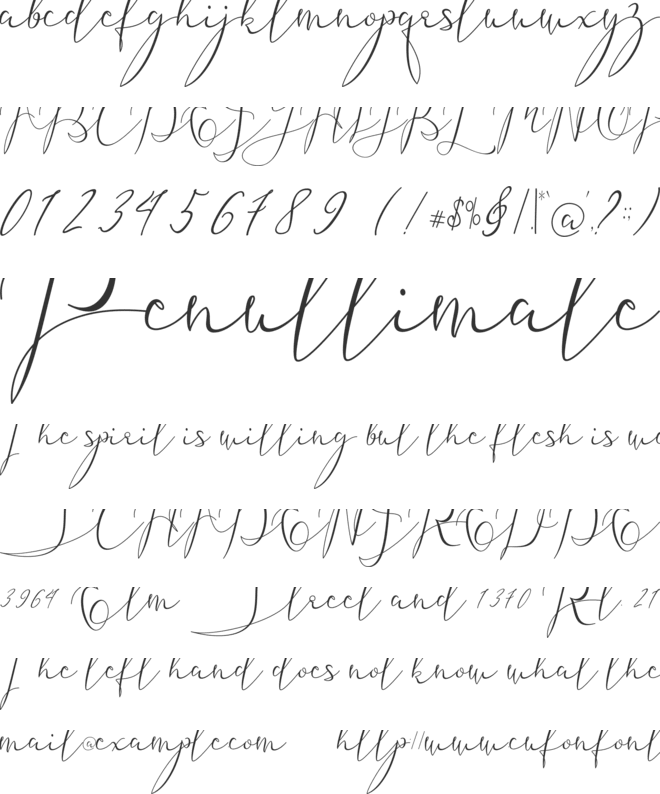 abcdefghijklmnopqrstuvwxyz
ABCDEFGHIJKLMNOP
0123456789 (!#$%&/|*`@',?:;)
Penultimate
The spirit is willing but the flesh is we
SCHADENFREUDE
3964 Elm Street and 1370 Rt 21
The left hand does not know what the
mail@example.com http://www.cufonfont